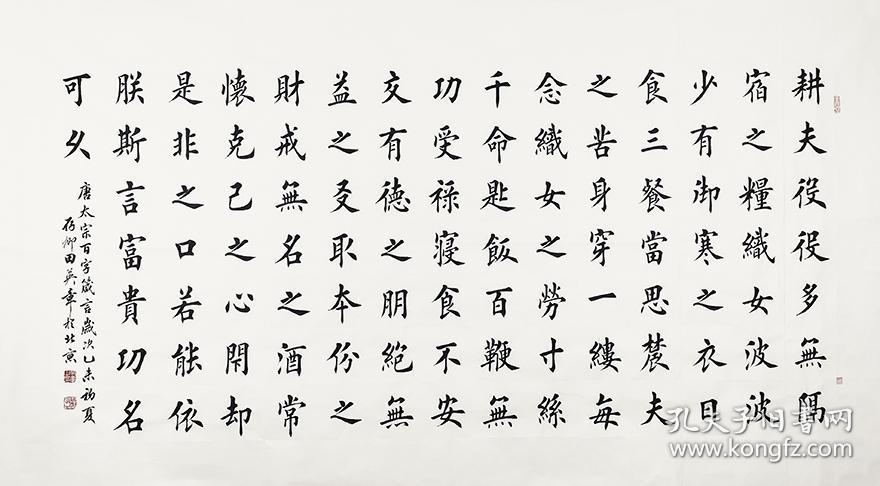 耕夫役役多無隔
宿之糧織女波波
少有御寒之衣日
食三餐當思農夫
之苦身穿一縷每
念織女之勞寸絲
千命匙飯百鞭無
功受祿寢食不安
交有德之朋絕無
益之友取本份之
財戒無名之酒常
懷克己之心閑却
是非之口若能依
朕斯言富貴功名
可久
唐太宗百字箴言歲次乙未初夏
存卿田英章於北京
孔夫子旧書网
www.kongfz.com